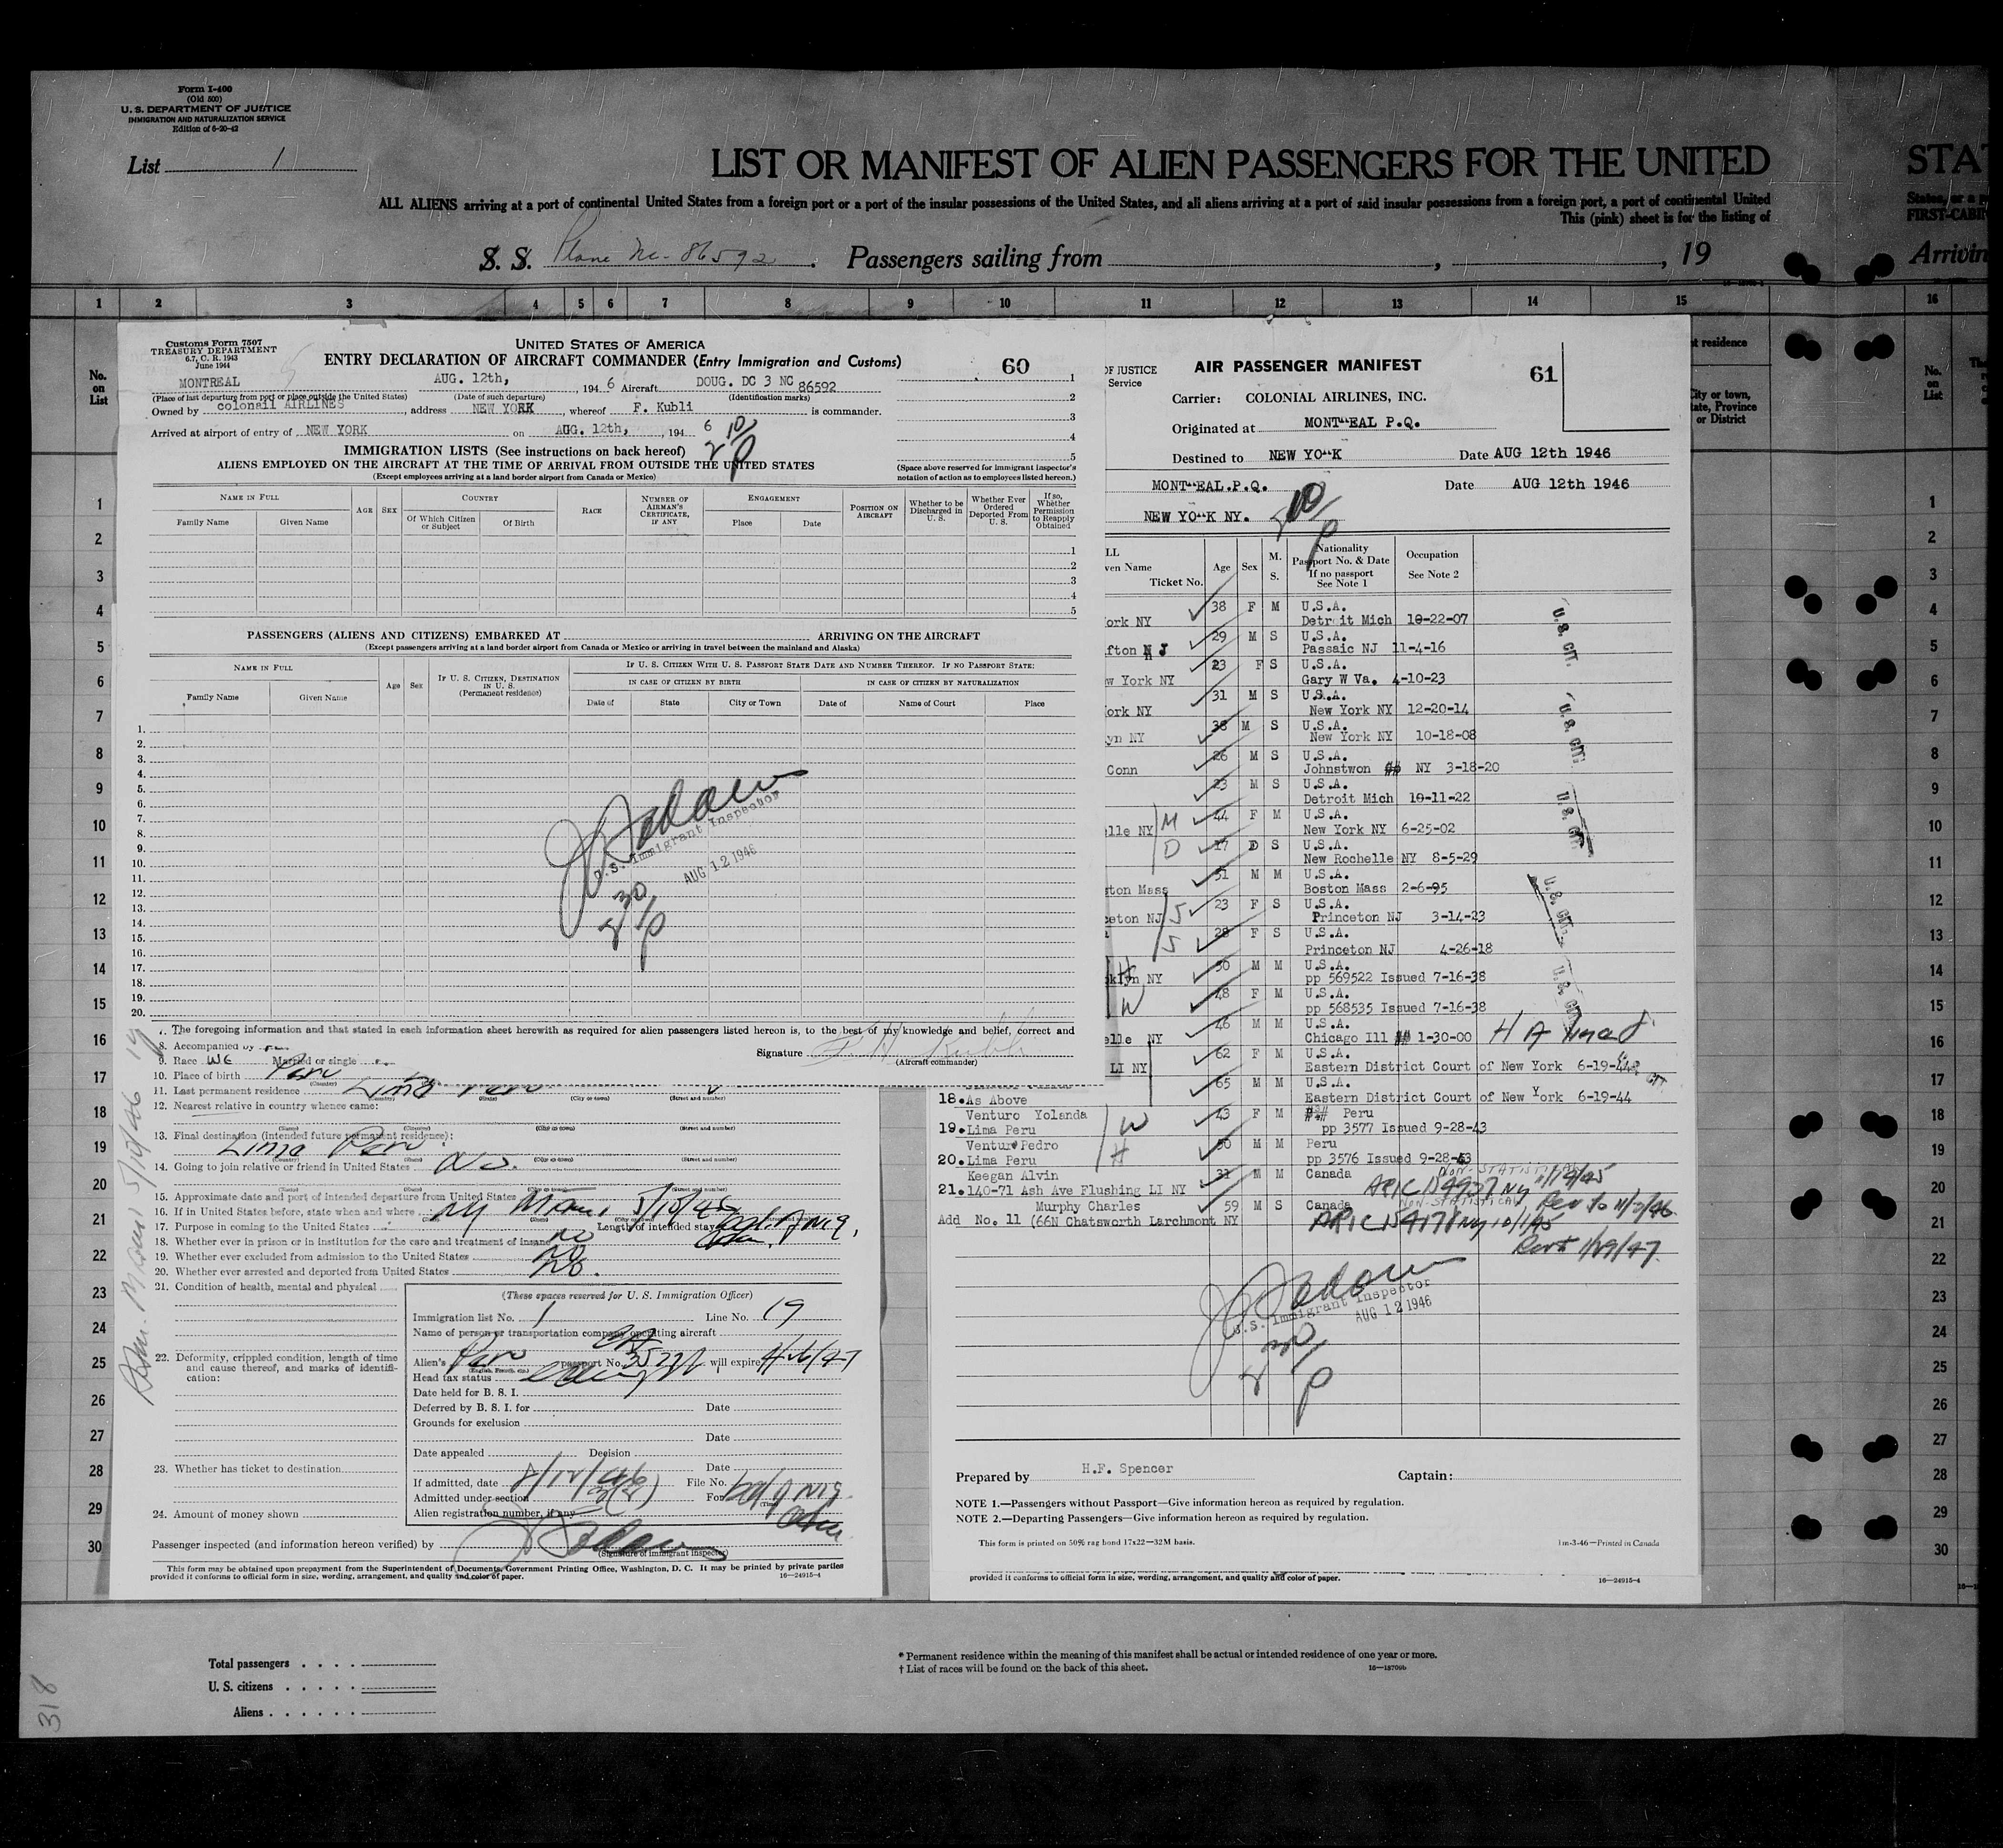 Form I-400
(Old 500)
U. S. DEPARTMENT OF JUSTICE
IMMIGRATION AND NATURALIZATION SERVICE
Edition of 6-20-42
List 1
LIST OR MANIFEST OF ALIEN PASSENGERS FOR THE UNITED
STA
ALL ALIENS arriving at a port of continental United States from a foreign port or a port of the insular possessions of the United States, and all aliens arriving at a port of said insular possessions from a foreign port, a port of continental United
This (pink) sheet is for the listing of
States, or a p
FIRST-CABI
S. S. Plane Nc-86592. Passengers sailing from , , 19
Arrivin
1 2 3 4 5 6 7 8 9 10 11 12 13 14 15 16
No. on List
Customs Form 7507
TREASURY DEPARTMENT
6.7, C. R. 1943
June 1944
UNITED STATES OF AMERICA
ENTRY DECLARATION OF AIRCRAFT COMMANDER (Entry Immigration and Customs)
60
MONTREAL AUG. 12th, , 194 6 Aircraft DOUG. DC 3 NC 86592
(Place of last departure from port or place outside the United States) (Date of such departure) (Identification marks)
Owned by colonail AIRLINES, address NEW YORK, whereof F. Kubli is commander.
Arrived at airport of entry of NEW YORK on AUG. 12th, , 194 6
IMMIGRATION LISTS (See instructions on back hereof)
ALIENS EMPLOYED ON THE AIRCRAFT AT THE TIME OF ARRIVAL FROM OUTSIDE THE UNITED STATES
(Except employees arriving at a land border airport from Canada or Mexico)
(Space above reserved for immigrant inspector's
notation of action as to employees listed hereon.)
NAME IN FULL
Family Name Given Name
AGE SEX
COUNTRY
Of Which Citizen or Subject Of Birth
RACE
NUMBER OF AIRMAN'S CERTIFICATE, IF ANY
ENGAGEMENT
Place Date
POSITION ON AIRCRAFT
Whether to be Discharged in U. S.
Whether Ever Ordered Deported From U. S.
If so, Whether Permission to Reapply Obtained
PASSENGERS (ALIENS AND CITIZENS) EMBARKED AT ARRIVING ON THE AIRCRAFT
(Except passengers arriving at a land border airport from Canada or Mexico or arriving in travel between the mainland and Alaska)
NAME IN FULL
Family Name Given Name
Age Sex
IF U. S. CITIZEN, DESTINATION IN U. S.
(Permanent residence)
IF U. S. CITIZEN WITH U. S. PASSPORT STATE DATE AND NUMBER THEREOF. IF NO PASSPORT STATE:
IN CASE OF CITIZEN BY BIRTH
IN CASE OF CITIZEN BY NATURALIZATION
Date of State City or Town Date of Name of Court Place
1.
2.
3.
4.
5.
6.
7.
8.
9.
10.
11.
12.
13.
14.
15.
16.
17.
18.
19.
20.
U.S. Immigrant Inspector
AUG 12 1946
The foregoing information and that stated in each information sheet herewith as required for alien passengers listed hereon is, to the best of my knowledge and belief, correct and
Signature F. H. Kubli
(Aircraft commander)
8. Accompanied by
9. Race Married or single
10. Place of birth Peru
(Country)
11. Last permanent residence Lima Peru
(Country) (State) (City or town) (Street and number)
12. Nearest relative in country whence came:
(Name) (Country) (City or town) (Street and number)
13. Final destination (intended future permanent residence):
Lima Peru
(Country) (State) (City or town) (Street and number)
14. Going to join relative or friend in United States No.
15. Approximate date and port of intended departure from United States
16. If in United States before, state when and where NY Miami 5/15/46
17. Purpose in coming to the United States Length of intended stay
18. Whether ever in prison or in institution for the care and treatment of insane no
19. Whether ever excluded from admission to the United States no
20. Whether ever arrested and deported from United States No.
21. Condition of health, mental and physical
22. Deformity, crippled condition, length of time
and cause thereof, and marks of identifi-
cation:
23. Whether has ticket to destination
24. Amount of money shown
(These spaces reserved for U. S. Immigration Officer)
Immigration list No. 1 Line No. 19
Name of person or transportation company operating aircraft
Alien's Peru passport No. 3577 will expire
(English, French, etc.)
Head tax status
Date held for B. S. I.
Deferred by B. S. I. for Date
Grounds for exclusion
Date
Date appealed Decision
Date
If admitted, date 8/12/46 File No.
Admitted under section 3(2) For
(Time)
Alien registration number, if any
Passenger inspected (and information hereon verified) by
(Signature of immigrant inspector)
This form may be obtained upon prepayment from the Superintendent of Documents, Government Printing Office, Washington, D. C. It may be printed by private parties
provided it conforms to official form in size, wording, arrangement, and quality and color of paper.
16—24915-4
OF JUSTICE
Service
AIR PASSENGER MANIFEST
61
Carrier: COLONIAL AIRLINES, INC.
Originated at MONT EAL P.Q.
Destined to NEW YO K Date AUG 12th 1946
MONT EAL.P.Q. Date AUG 12th 1946
NEW YO K NY.
LL
ven Name
Ticket No.
Age Sex M. S.
Nationality
Passport No. & Date
If no passport
See Note 1
Occupation
See Note 2
38 F M U.S.A.
ork NY Detroit Mich 10-22-07
29 M S U.S.A.
fton N J Passaic NJ 11-4-16
23 F S U.S.A.
w York NY Gary W Va. 4-10-23
31 M S U.S.A.
ork NY New York NY 12-20-14
38 M S U.S.A.
yn NY New York NY 10-18-08
26 M S U.S.A.
Conn Johnstwon NY 3-18-20
23 M S U.S.A.
Detroit Mich 10-11-22
44 F M U.S.A.
lle NY M New York NY 6-25-02
17 D S U.S.A.
D New Rochelle NY 8-5-29
51 M M U.S.A.
ston Mass Boston Mass 2-6-95
23 F S U.S.A.
ceton NJ S Princeton NJ 3-14-23
28 F S U.S.A.
S Princeton NJ 4-26-18
50 M M U.S.A.
klyn NY H pp 569522 Issued 7-16-38
48 F M U.S.A.
W pp 568535 Issued 7-16-38
46 M M U.S.A.
elle NY Chicago Ill 1-30-00
62 F M U.S.A.
LI NY Eastern District Court of New York 6-19-44
65 M M U.S.A.
18. As Above Eastern District Court of New York 6-19-44
Venturo Yolanda W 43 F M Peru
19. Lima Peru pp 3577 Issued 9-28-43
Ventur Pedro H 50 M M Peru
20. Lima Peru pp 3576 Issued 9-28-43
Keegan Alvin 31 M M Canada NON-STATISTICAL
21. 140-71 Ash Ave Flushing LI NY
Murphy Charles 59 M S Canada NON-STATISTICAL
Add No. 11 (66N Chatsworth Larchmont NY
U. S. CIT.
U. S. CIT.
U. S. CIT.
U. S. CIT.
U. S. CIT.
U.S. Immigrant Inspector
AUG 12 1946
Prepared by H.F. Spencer Captain:
NOTE 1.—Passengers without Passport—Give information hereon as required by regulation.
NOTE 2.—Departing Passengers—Give information hereon as required by regulation.
This form is printed on 50% rag bond 17x22—32M basis.
1m-3-46—Printed in Canada
provided it conforms to official form in size, wording, arrangement, and quality and color of paper.
16—24915-4
t residence
City or town,
tate, Province
or District
No. on List
Total passengers
U. S. citizens
Aliens
* Permanent residence within the meaning of this manifest shall be actual or intended residence of one year or more.
† List of races will be found on the back of this sheet.
16—18709b
318